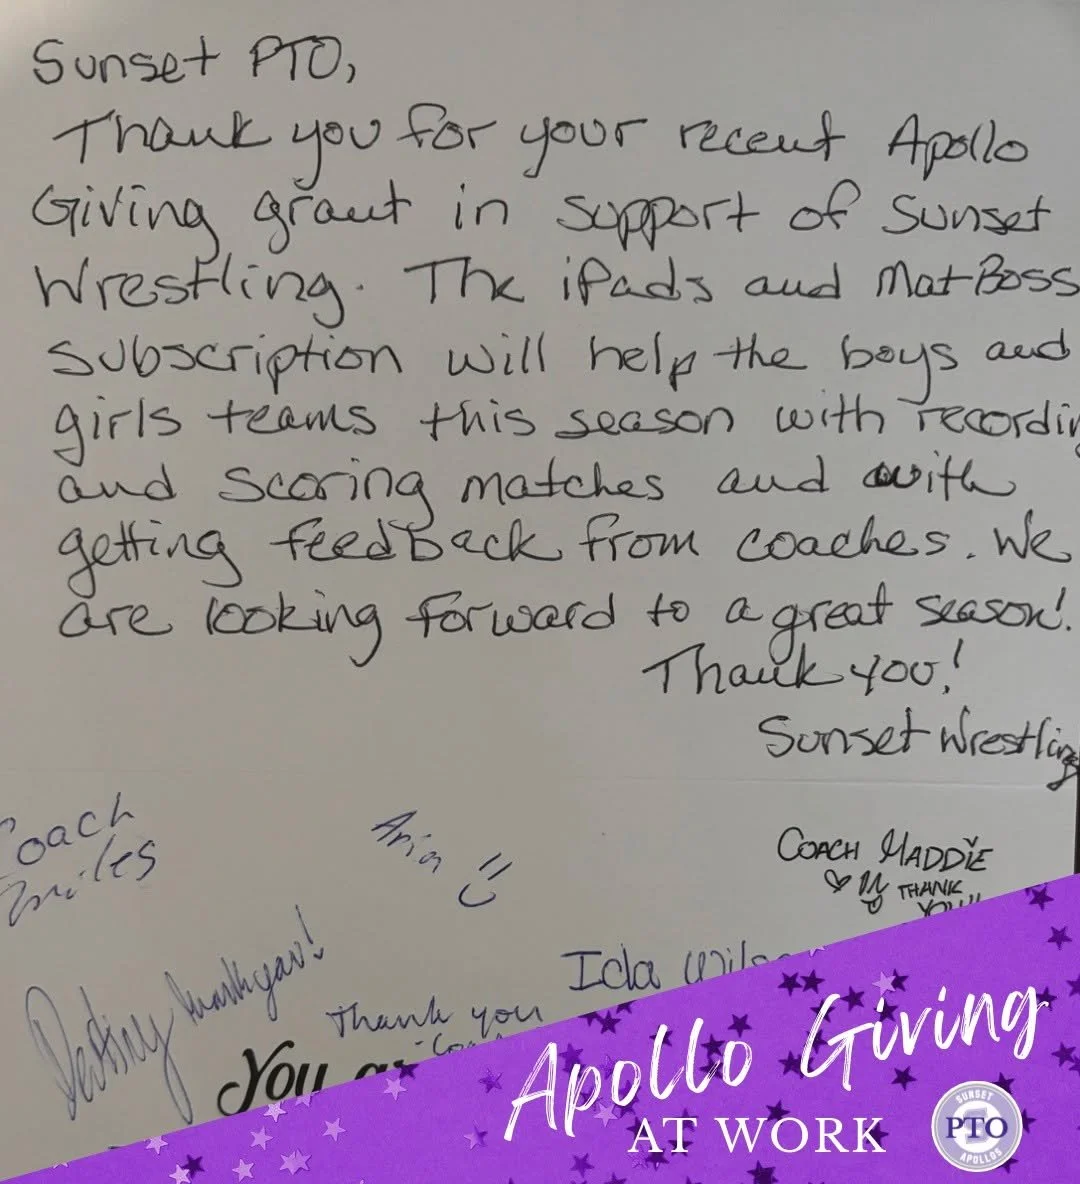 Sunset PTO,
Thank you for your recent Apollo
Giving grant in support of Sunset
Wrestling. The iPads and MatBoss
subscription will help the boys and
girls teams this season with recording
and scoring matches and with
getting feedback from coaches. We
are looking forward to a great season!
Thank you!
Sunset Wrestling
Coach
Miles
Aria
COACH MADDIE
THANK
YOU!!
Ida
Destiny Thank you!
Thank you
You
Apollo Giving
AT WORK
SUNSET
PTO
APOLLOS